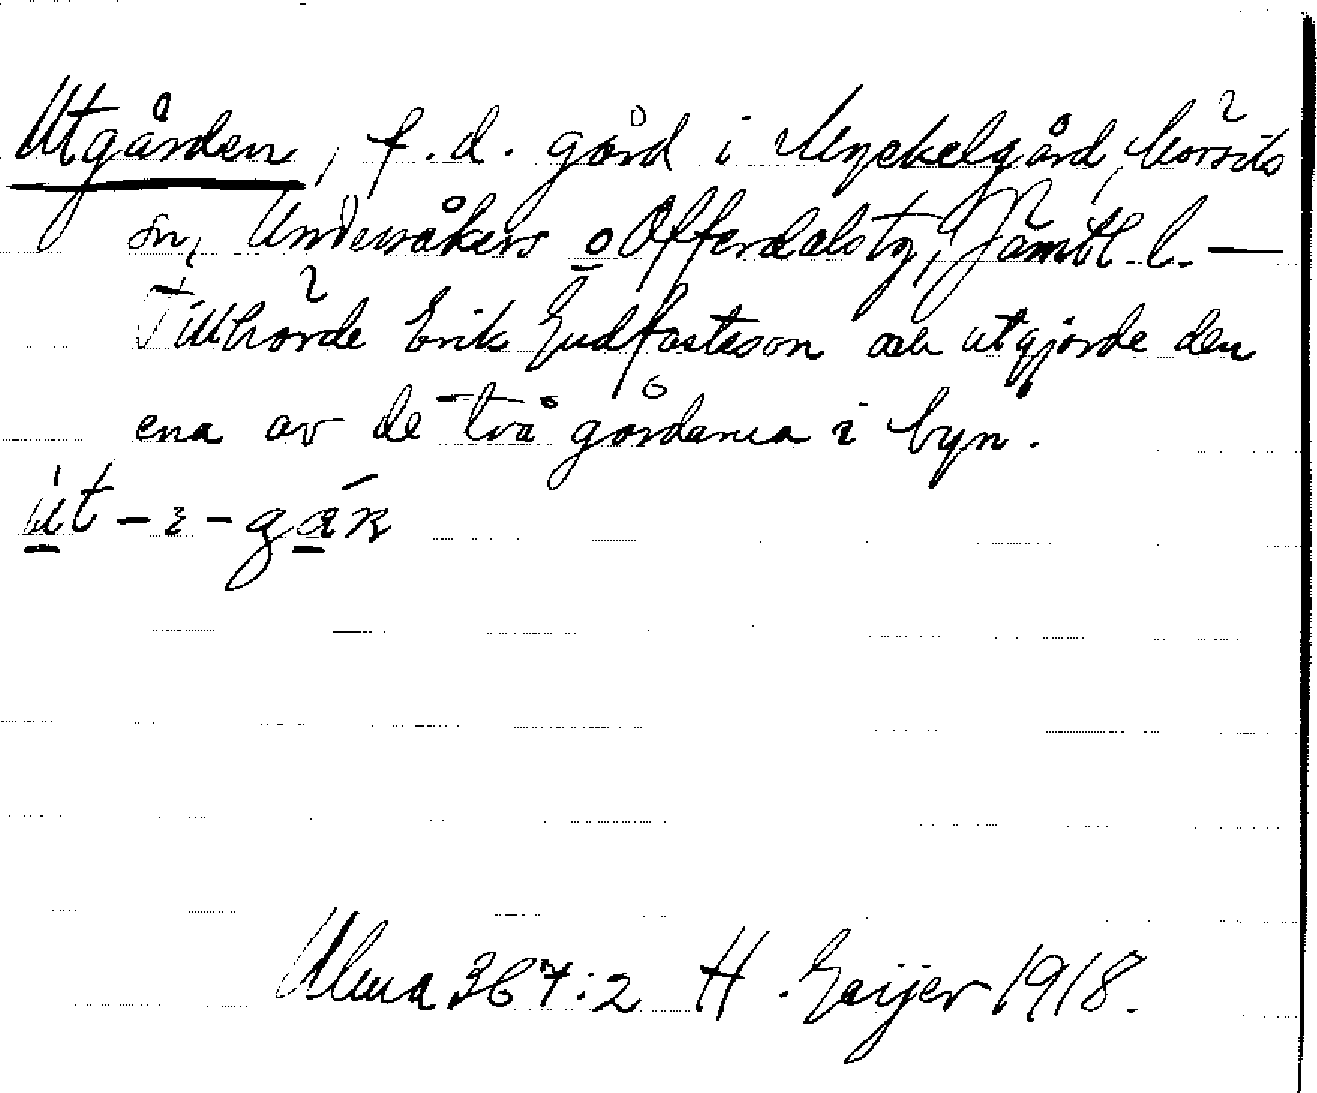 Utgården, f.d. gård i Myckelgård, Mörsils
sn, Undersåkers o Offerdals tg, Jämtl. l. —
Tillhörde Erik Gudfastsson och utgjorde den
ena av de två gårdarna i byn.
Ulma 367:2 H. Geijer 1918.